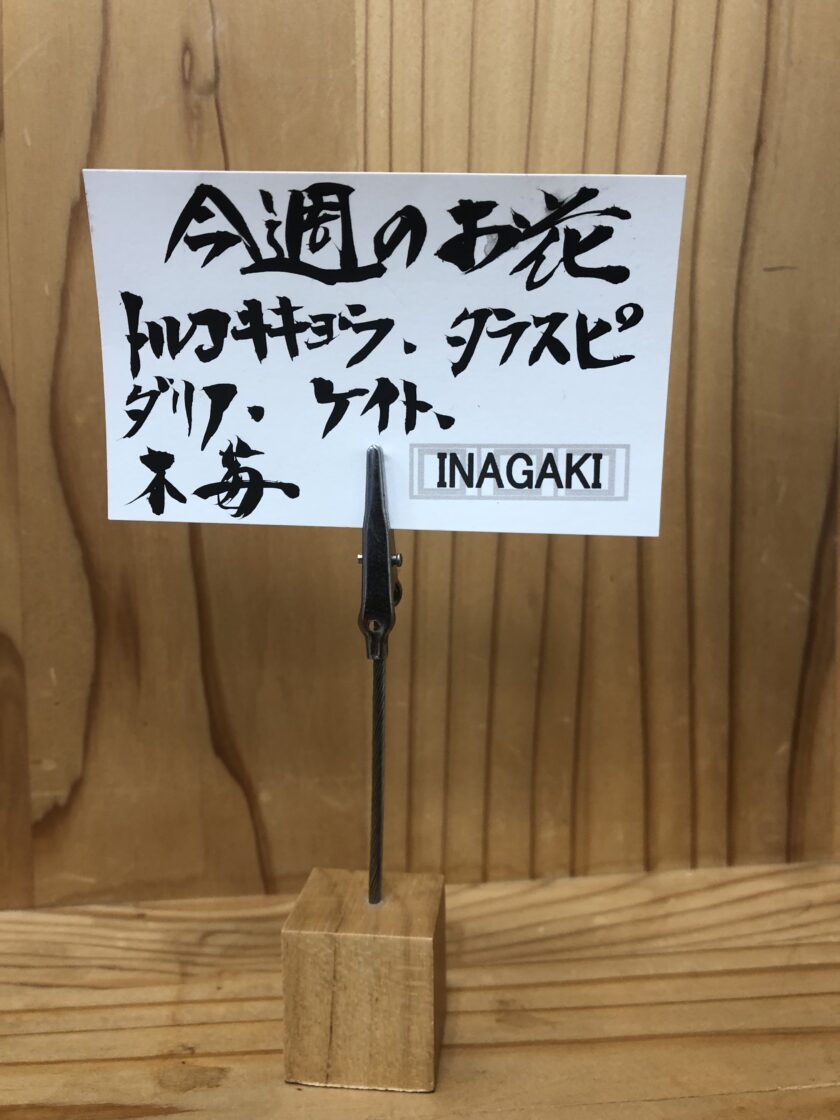 今週のお花
トルコキキョウ、タラスピ
ダリア、ケイト、
木苺
INAGAKI